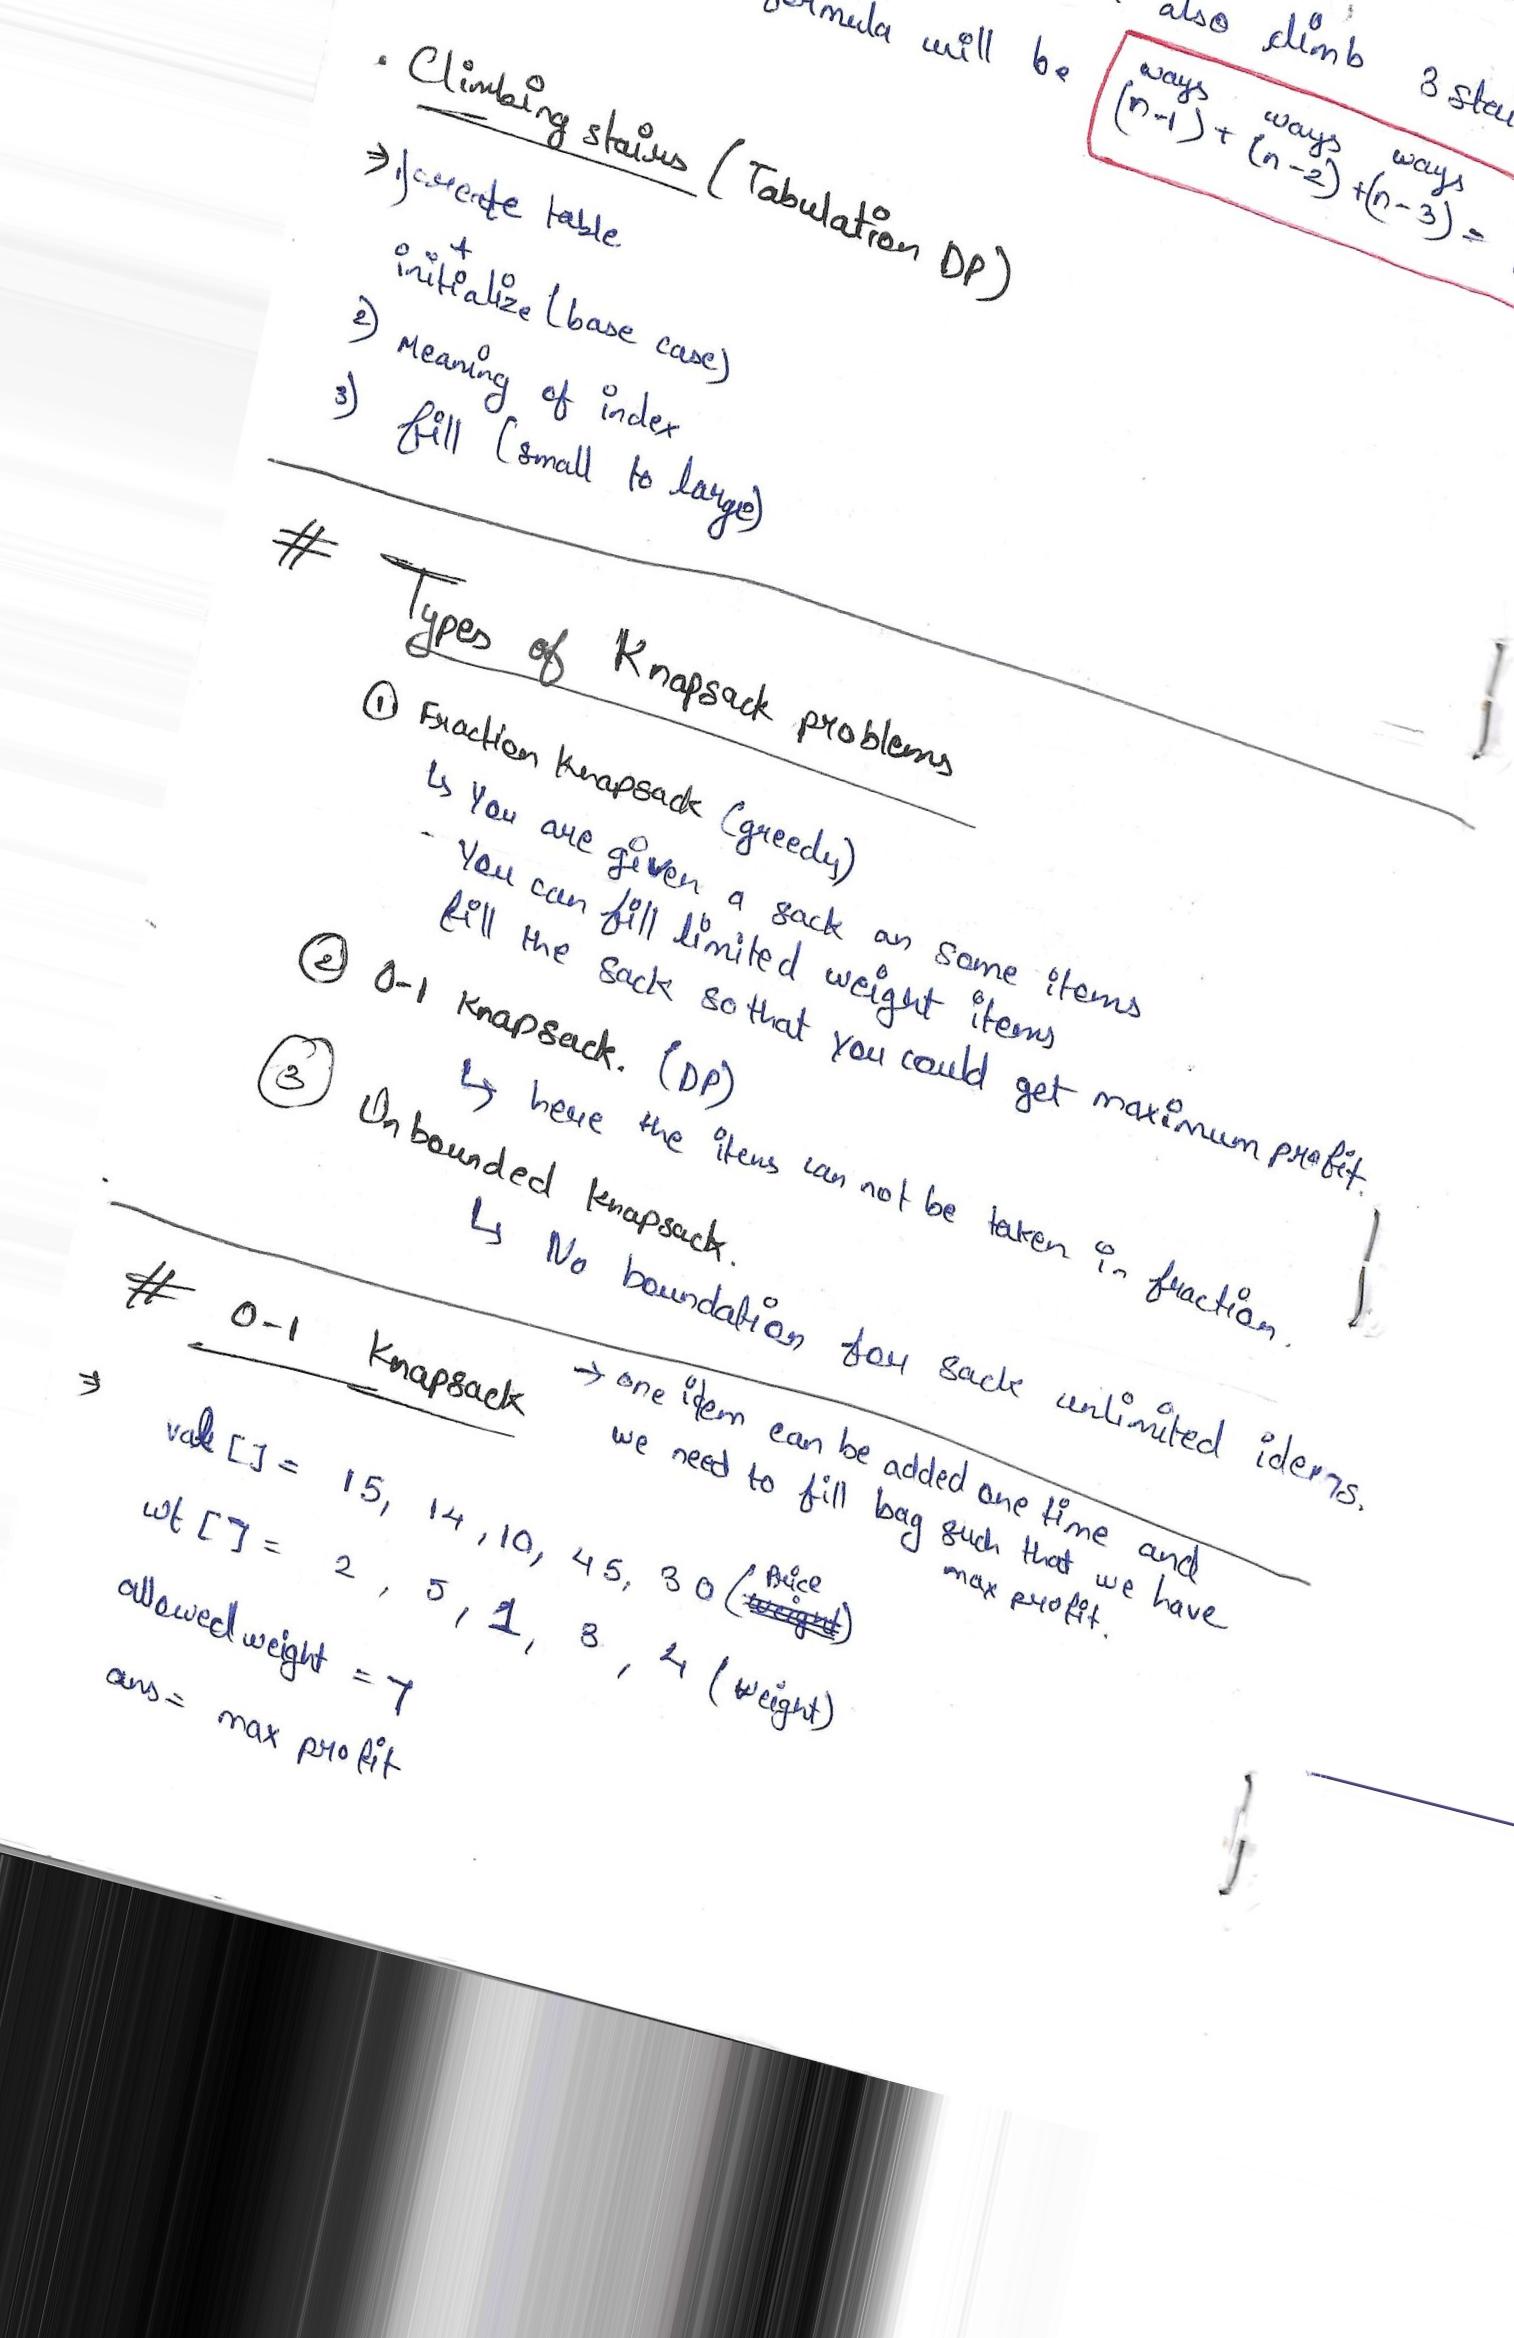 also climb 3
formula will be
ways ways ways
(n-1) + (n-2) + (n-3) =
. Climbing stairs (Tabulation DP)
⇒ 1) create table
+
initialize (base case)
2) Meaning of index
3) fill (small to large)
# Types of Knapsack problems
① Fraction Knapsack (greedy)
↳ You are given a sack an some items
- You can fill limited weight items
fill the sack so that you could get maximum profit.
② 0-1 Knapsack. (DP)
↳ here the itens can not be taken in fraction.
③ Unbounded Knapsack.
↳ No boundation for sack unlimited idems.
# 0-1 Knapsack → one item can be added one time and
we need to fill bag such that we have
max profit.
⇒ val [] = 15, 14, 10, 45, 30 (Price)
wt [] = 2, 5, 1, 3, 4 (weight)
allowed weight = 7
ans = max profit